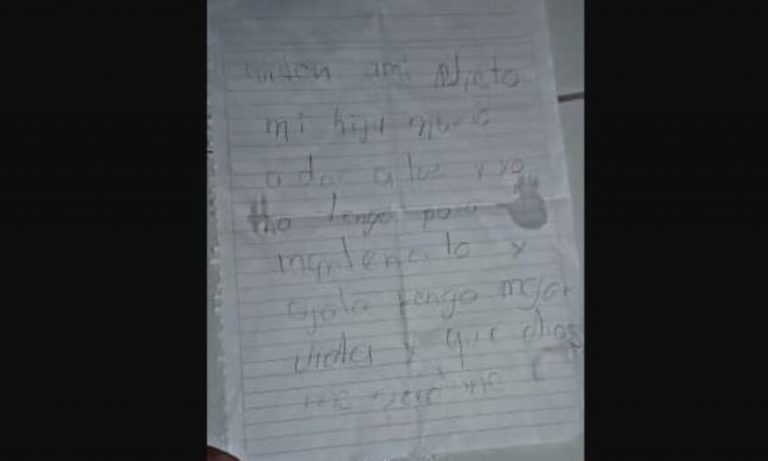 cuiden ami Nieto
mi hija murió
a dar a luz y yo
no tengo para
mantenerlo y
ojala tenga mejor
vida y que dios
me perdone